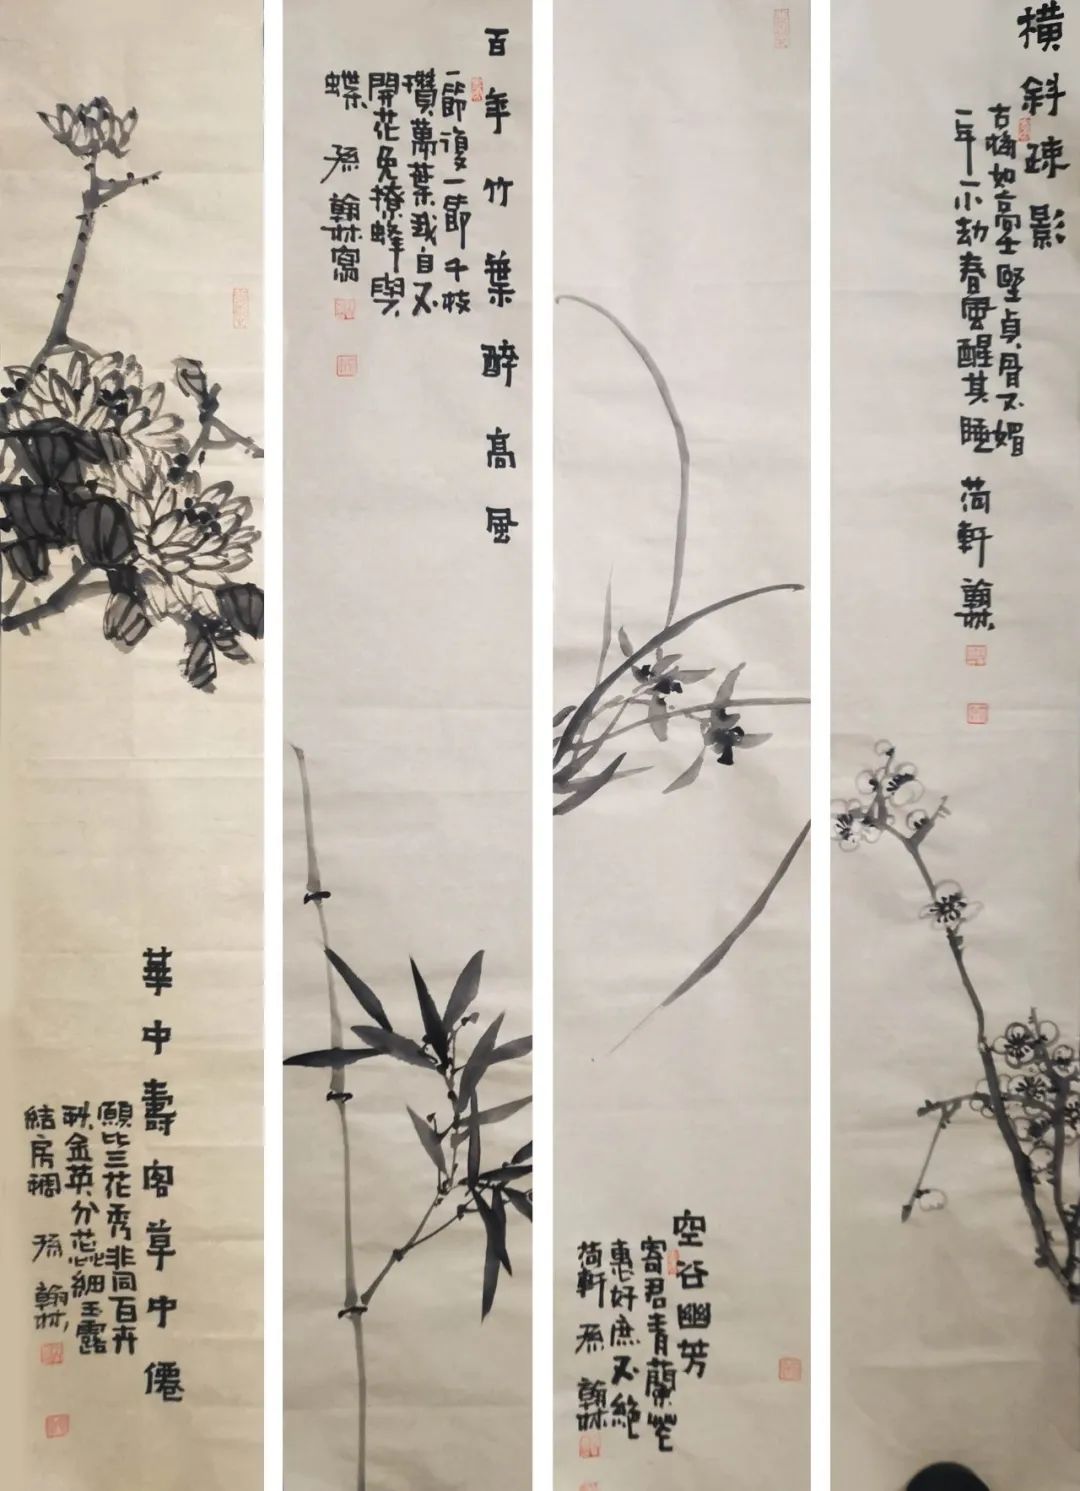 橫斜疎影
古梅如高士堅貞骨不媚
一年一小劫春風醒其睡 荷軒 翰林
空谷幽芳
寄君青蘭花
惠好庶不絕
荷軒 孫 翰林
百年竹葉醉高風
一節復一節千枝
攢萬葉我自不
開花免撩蜂與
蝶 孫 翰林寫
華中壽客草中僊
願比三花秀非同百卉
秋金英分蕊細玉露
結房稠 孫 翰林